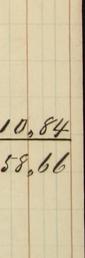 10,84
58,66